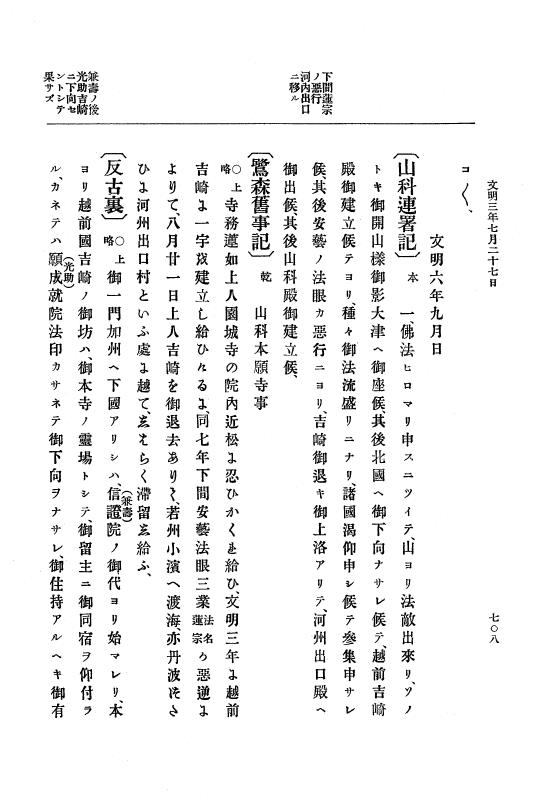 文明三年七月二十七日
七〇八
下間蓮宗
ノ惡行
河内出口
ニ移ル
兼壽ノ後
光助吉崎
ニ下向セ
ントシテ
果サズ
コ〱、
文明六年九月日
〔山科連署記〕本 一佛法ヒロマリ申スニツイテ、山ヨリ法敵出來リ、ソノ
トキ御開山樣御影大津ヘ御座候、其後北國ヘ御下向ナサレ候テ、越前吉崎
殿御建立候テヨリ、種々御法流盛リニナリ、諸國渴仰申シ候テ參集申サレ
候、其後安藝ノ法眼カ惡行ニヨリ、吉崎御退キ御上洛アリテ、河州出口殿ヘ
御出候、其後山科殿御建立候、
〔鷺森舊事記〕乾 山科本願寺事
○上略 寺務蓮如上人園城寺の院内近松よ忍ひかくれ給ひ、文明三年よ越前
吉崎よ一宇を建立し給ひけるよ、同七年下間安藝法眼三業法名蓮宗の惡逆よ
よりて、八月廿一日上人吉崎を御退去ありく、若州小濱ヘ渡海、亦丹波ちさ
ひよ河州出口村といふ處よ越て、志はらく滯留志給ふ、
〔反古裏〕○上略 御一門加州ヘ下國アリシハ、信證院(兼壽)ノ御代ヨリ始マレリ、本
ヨリ越前國吉崎ノ御坊ハ、御本寺ノ靈場トシテ、御留主ニ御同宿ヲ仰付ラ
ル、カネテハ願成就院(光助)法印カサネテ御下向ヲナサレ、御住持アルヘキ御有